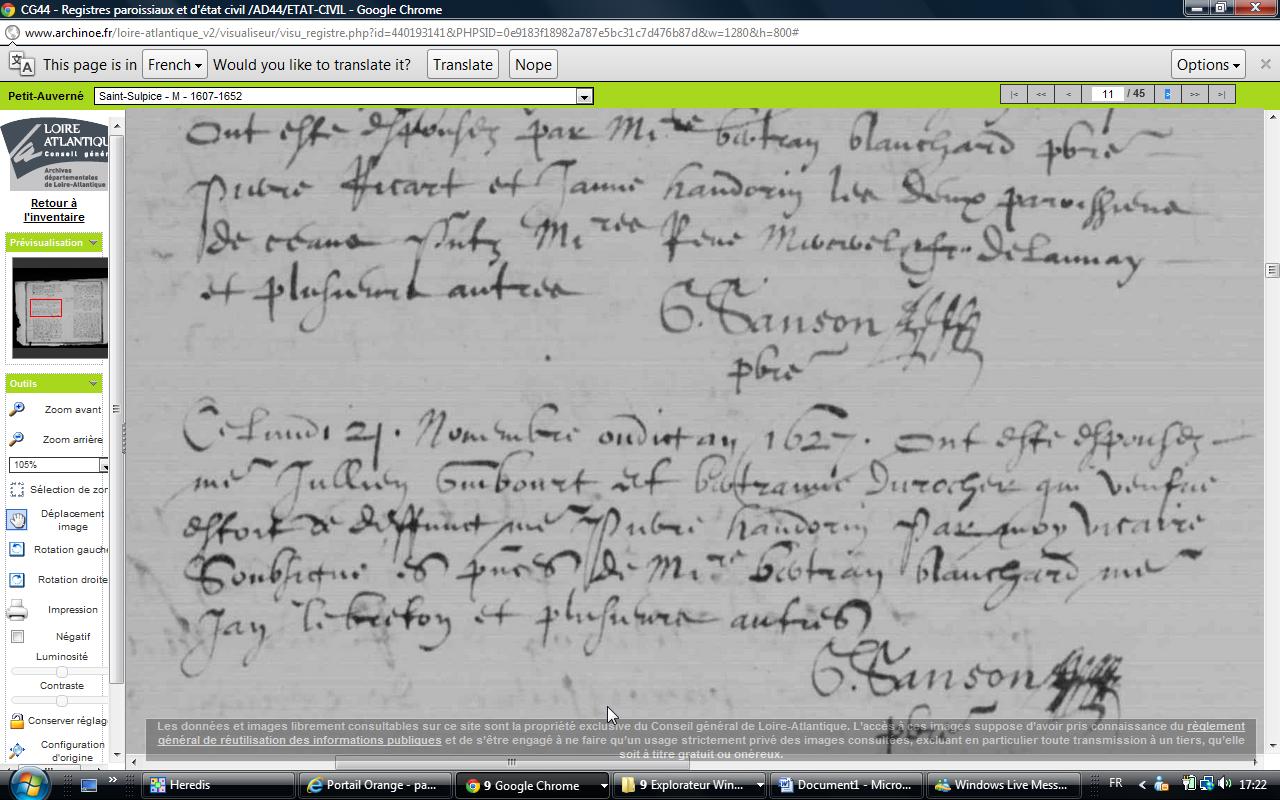 CG44 - Registres paroissiaux et d'état civil /AD44/ETAT-CIVIL - Google Chrome
www.archinoe.fr/loire-atlantique_v2/visualiseur/visu_registre.php?id=440193141&PHPSID=0e9183f18982a787e5bc31c7d476b87d&w=1280&h=800#
This page is in French Would you like to translate it? Translate Nope Options
Petit-Auverné Saint-Sulpice - M - 1607-1652 |< << < 11 / 45 > >> >|
LOIRE
ATLANTIQU
Conseil génér
Archives
départementales
de Loire-Atlantique
Retour à
l'inventaire
Prévisualisation
Outils
Zoom avant
Zoom arrière
105%
Sélection de zor
Déplacement
image
Rotation gauch
Rotation droite
Impression
Négatif
Luminosité
Contraste
Conserver réglag
Configuration
d'origine
Ont esté espousez par Mire bertran blanchard pbre
Pierre ficart et Janne handorin les deux paroissiens
de ceans Mires Rene de Launay
et plusieurs autres
G. Sanson
pbre
Ce Lundi 21. Novembre oudict an 1627. Ont esté espousez
me Jullien Guibourt et bertranne Durocher qui veufve
estoit de deffunct me Pierre handorin Par moy vicaire
Soubsigné es pnces de Mire bertran blanchard me
Jan lebreton et plusieurs autres
G. Sanson
Les données et images librement consultables sur ce site sont la propriété exclusive du Conseil général de Loire-Atlantique. L'accès à ces images suppose d'avoir pris connaissance du règlement
général de réutilisation des informations publiques et de s'être engagé à ne faire qu'un usage strictement privé des images consultées, excluant en particulier toute transmission à un tiers, qu'elle
soit à titre gratuit ou onéreux.
Heredis Portail Orange - pa... 9 Google Chrome 9 Explorateur Win... Document1 - Micro... Windows Live Mess... FR 17:22